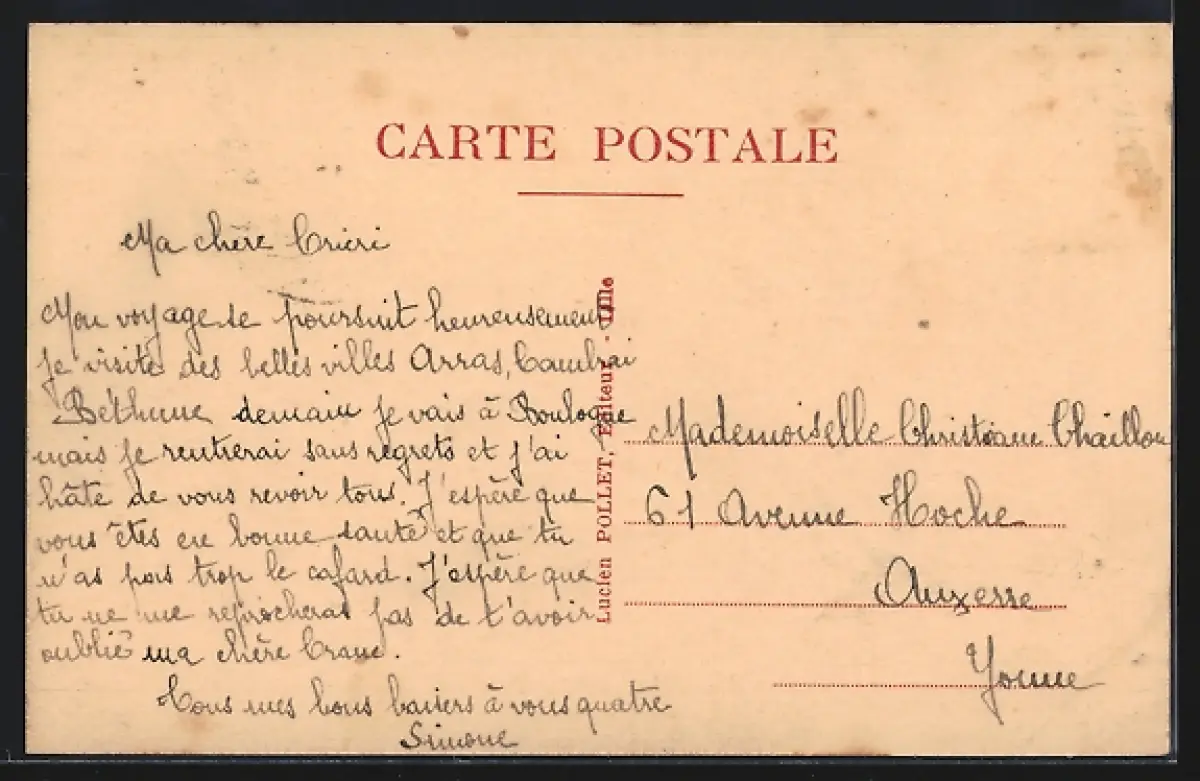 CARTE POSTALE
Ma chère Cricri
Mon voyage se poursuit heureusement
je visite des belles villes Arras, Cambrai
Béthune demain je vais à Boulogne
mais je rentrerai sans regrets et j'ai
hâte de vous revoir tous. J'espère que
vous êtes en bonne santé et que tu
n'as pas trop le cafard. J'espère que
tu ne me reprocheras pas de t'avoir
oublié ma chère
Tous mes bons baisers à vous quatre
Simone
Lucien POLLET, Editeur - Lille
Mademoiselle Christiane Chaillou
61 Avenue Hoche
Auxerre
Yonne